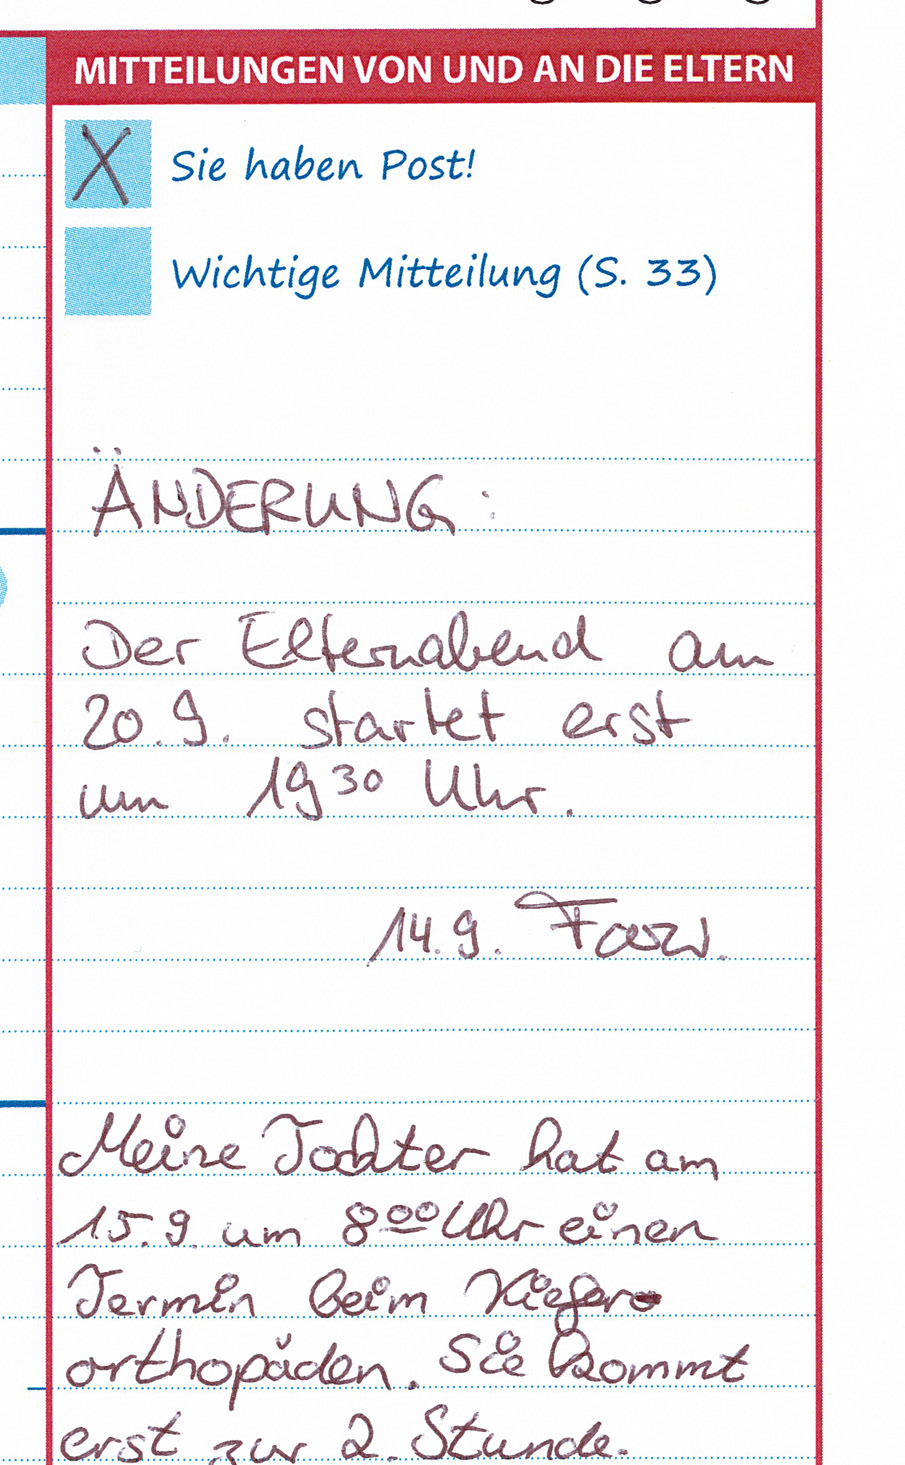 MITTEILUNGEN VON UND AN DIE ELTERN
X Sie haben Post!
Wichtige Mitteilung (S. 33)
ÄNDERUNG:
Der Elternabend am
20.9. startet erst
um 19 30 Uhr.
14.9.
Meine Tochter hat am
15.9. um 8 00 Uhr einen
Termin beim Kiefer
orthopäden. Sie kommt
erst zur 2. Stunde.